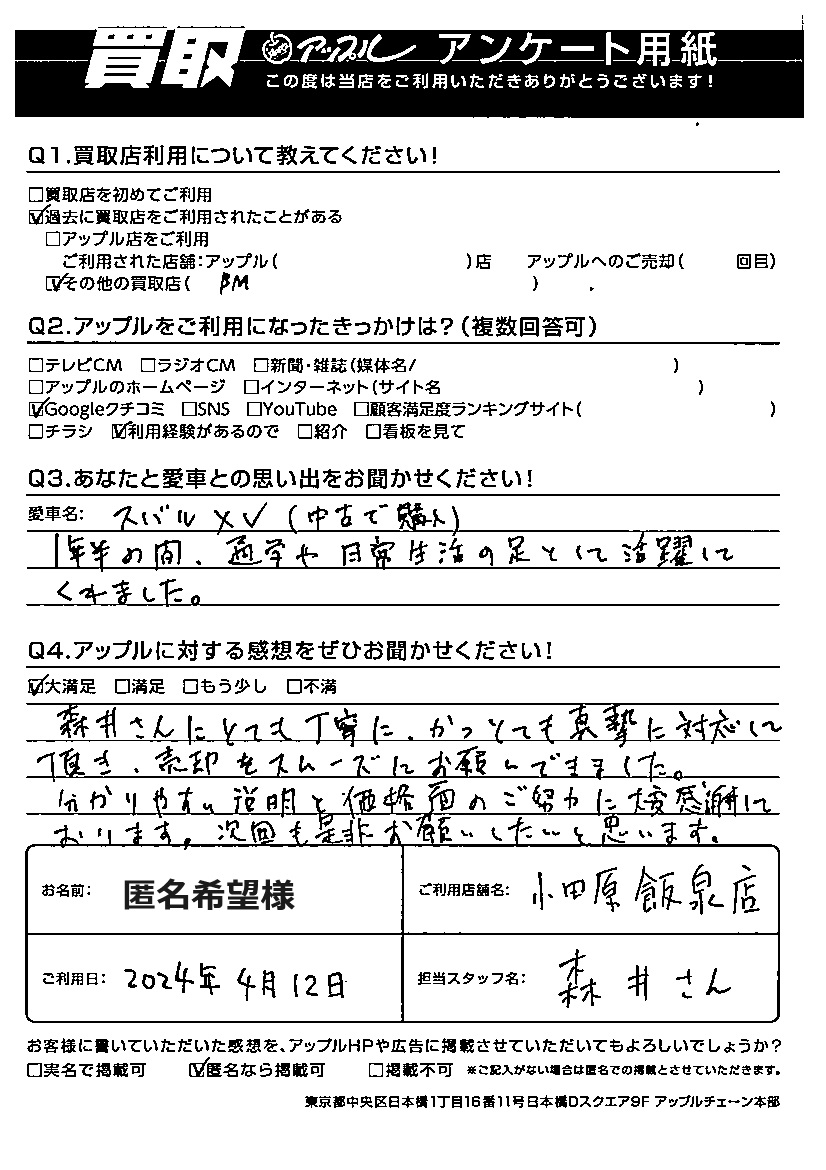 買取 アップル アンケート用紙
この度は当店をご利用いただきありがとうございます!
Q1.買取店利用について教えてください!
□買取店を初めてご利用
☑過去に買取店をご利用されたことがある
□アップル店をご利用
ご利用された店舗:アップル( )店 アップルへのご売却( 回目)
☑その他の買取店( BM )
Q2.アップルをご利用になったきっかけは?(複数回答可)
□テレビCM □ラジオCM □新聞・雑誌(媒体名/ )
□アップルのホームページ □インターネット(サイト名 )
☑Googleクチコミ □SNS □YouTube □顧客満足度ランキングサイト( )
□チラシ ☑利用経験があるので □紹介 □看板を見て
Q3.あなたと愛車との思い出をお聞かせください!
愛車名: スバルXV(中古で購入)
1年半の間、通学や日常生活の足として活躍して
くれました。
Q4.アップルに対する感想をぜひお聞かせください!
☑大満足 □満足 □もう少し □不満
森井さんにとても丁寧に、かつとても真摯に対応して
頂き、売却をスムーズにお願いできました。
分かりやすい説明と価格面のご努力に大変感謝して
おります。次回も是非お願いしたいと思います。
お名前: 匿名希望様 ご利用店舗名: 小田原飯泉店
ご利用日: 2024年4月12日 担当スタッフ名: 森井さん
お客様に書いていただいた感想を、アップルHPや広告に掲載させていただいてもよろしいでしょうか?
□実名で掲載可 ☑匿名なら掲載可 □掲載不可 ※ご記入がない場合は匿名での掲載とさせていただきます。
東京都中央区日本橋1丁目16番11号日本橋Dスクエア9F アップルチェーン本部